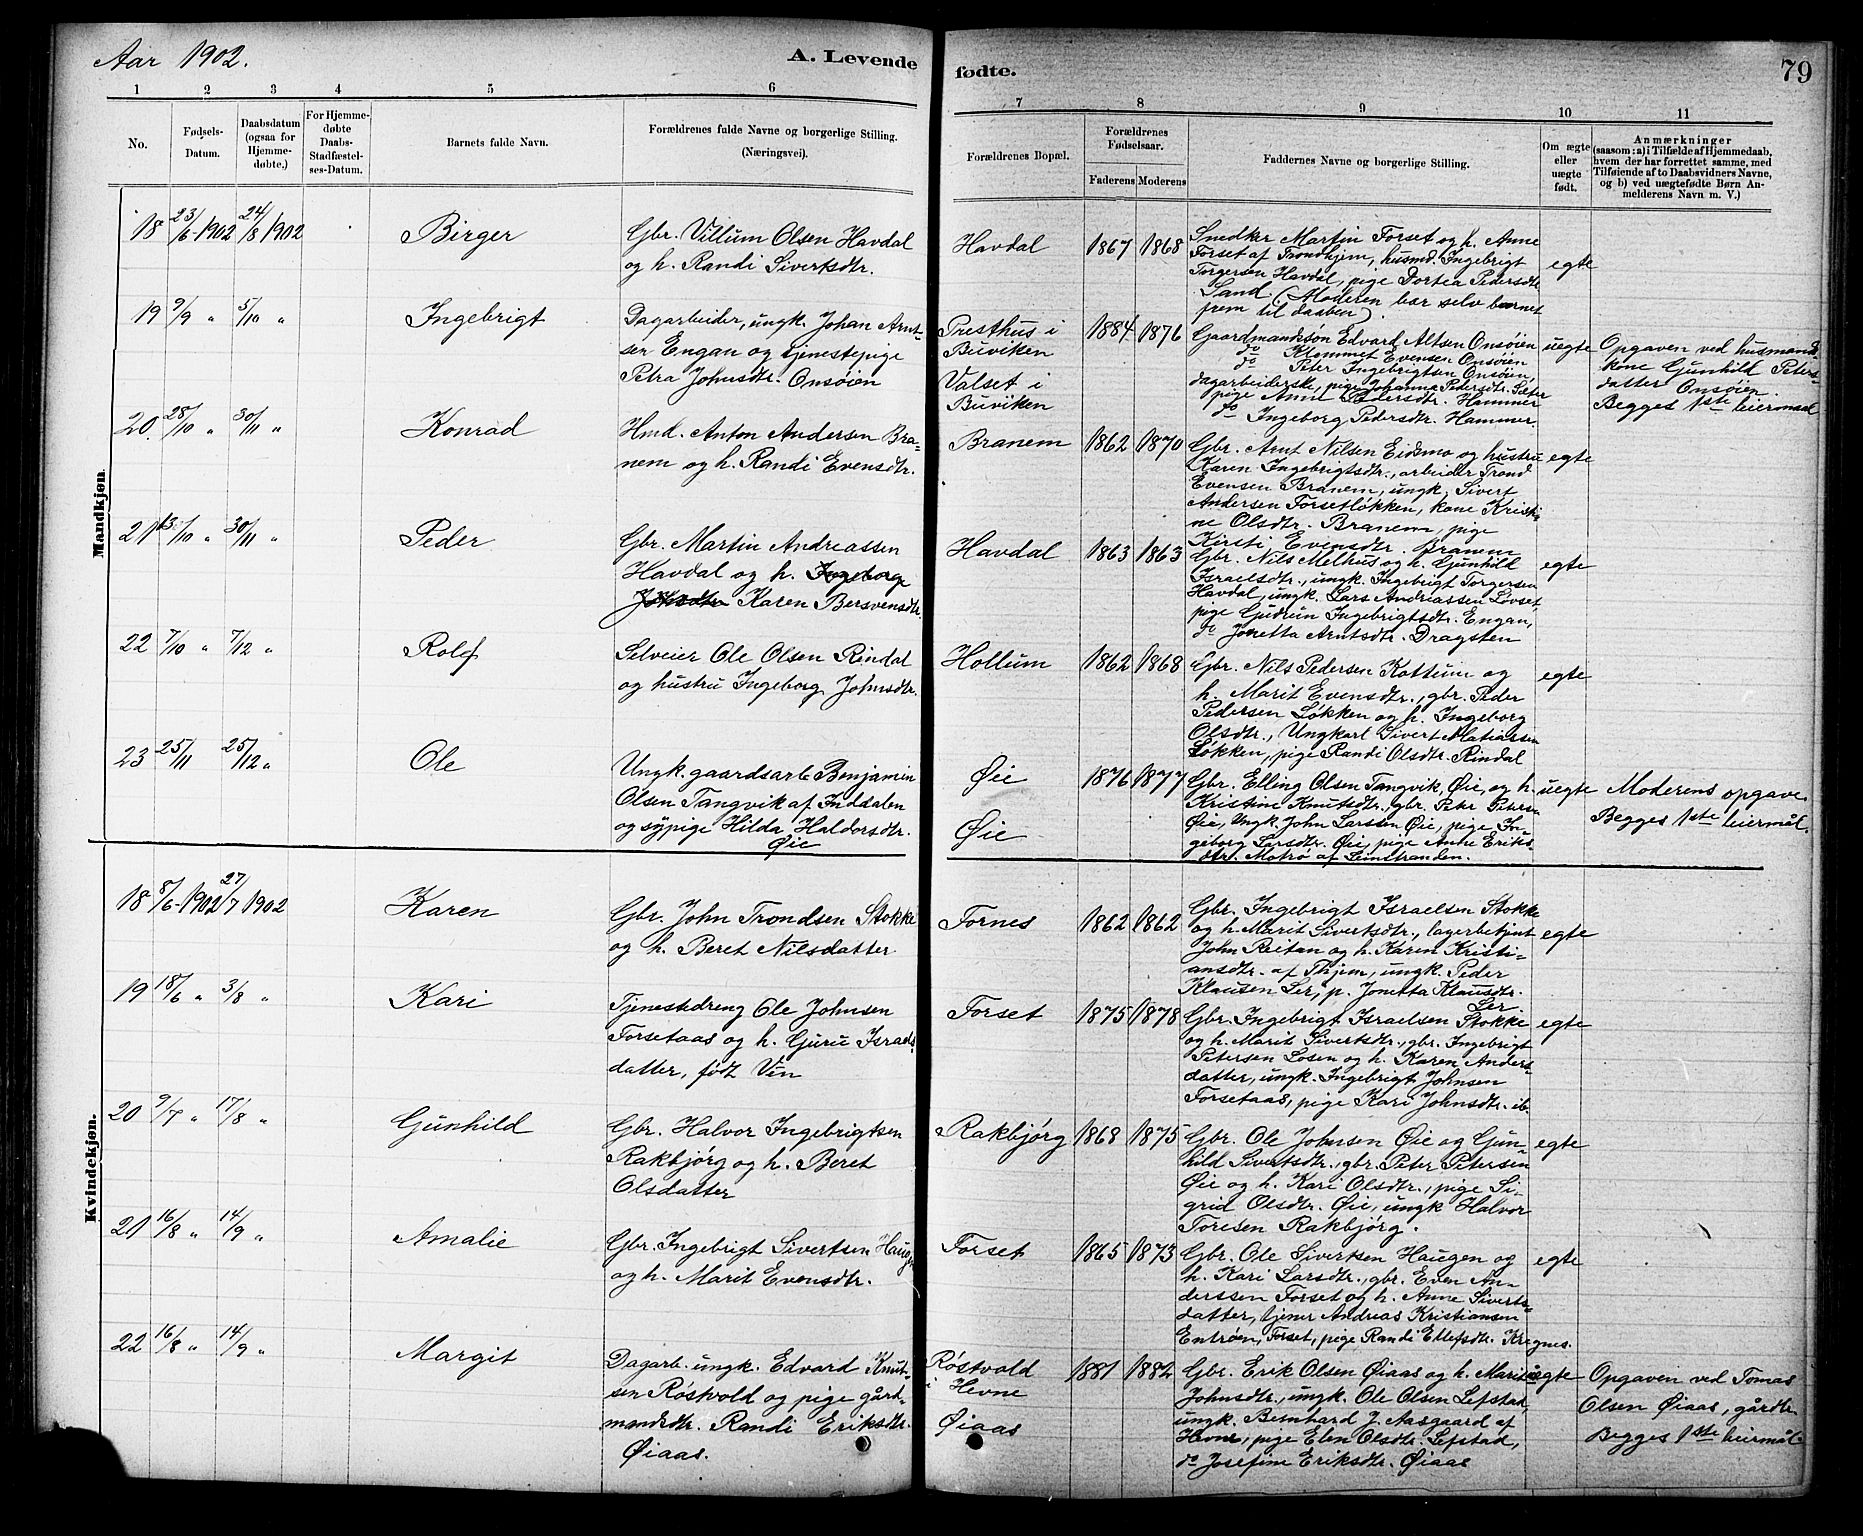 Aar 1902.
A. Levende
fødte.
79
1 2 3 4 5 6 7 8 9 10 11
No.
Fødsels-
Datum.
Daabsdatum
(ogsaa for
Hjemme-
døbte.)
For Hjemme-
døbte
Daabs-
Stadfæstel-
ses-Datum.
Barnets fulde Navn.
Forældrenes fulde Navne og borgerlige Stilling.
(Næringsvei).
Forældrenes Bopæl.
Forældrenes
Fødselsaar.
Faderens Moderens
Faddernes Navne og borgerlige Stilling.
Om ægte
eller
uægte
født.
Anmærkninger
(saasom: a) i Tilfælde af Hjemmedaab,
hvem der har forrettet samme, med
Tilføiende af to Daabsvidners Navne,
og b) ved uægtefødte Børn An-
melderens Navn m. V.)
Mandkjøn.
18 23/6-1902 24/8 1902 Birger
Gbr. Villum Olsen Havdal
og h. Randi Sivertsdtr.
Havdal 1867 1868
Snedker Martin Forset og h. Anne
Forset af Trondhjem, husmd. Ingebrigt
Torgersen Havdal, pige Dortea Pedersdtr
Sand. (Moderen bar selv barnet
frem til daaben).
egte
19 9/9 " 5/10 " Ingebrigt
Dagarbeider, ungk. Johan Arnt-
sen Engan og tjenestepige
Petra Johnsdtr. Onsøien
Presthus i
Buviken
Valset i
Buviken
1884 1876
Gaardmandssøn Edvard Altsen Onsøien
do Klemmet Evensen Onsøien
do Peter Ingebrigtsen Onsøien,
dagarbeiderske, pige Johanna Pedersdtr. Sæter
pige Anne Pedersdtr. Hammer
do Ingeborg Petersdtr. Hammer.
uegte
Opgaven ved husmands-
kone Gunhild Peters-
datter Onsøien.
Begges 1ste leiermaal
20. 28/10 " 30/11 " Konrad
Hmd. Anton Andersen Bra-
nem og h. Randi Evensdtr.
Branem 1862 1870
Gbr. Arnt Nilsen Eidsmo og hustru
Karen Ingebrigtsdtr., arbeider Trond
Evensen Branem, ungk. Sivert
Andersen Forsetløkken, kone Kristi-
ne Olsdtr. Branem, pige
Kirsti Evensdtr. Branem
egte
21 13/10 " 30/11 " Peder
Gbr. Martin Andreassen
Havdal og h. Ingeborg
Karen Bersvensdtr.
Havdal 1863 1863
Gbr. Nils Melhus og h. Gunhild
Israelsdtr., ungk. Ingebrigt Torgersen
Havdal, ungk. Lars Andreassen Lovset
pige Gudrun Ingebrigtsdtr. Engan,
do Jonetta Arntsdtr. Dragsten
egte
22 7/10 " 7/12 " Rolf
Selveier Ole Olsen Rindal
og hustru Ingeborg Johnsdtr.
Hollum 1862 1868
Gbr. Nils Pedersen Kottum og
h. Marit Evensdtr., gbr. Peder
Pedersen Løkken og h. Ingeborg
Olsdtr., Ungkarl Sivert Matiassen
Løkken, pige Randi Olsdtr. Rindal
egte
23 25/11 25/12 " Ole
Ungk. gaardsarb. Benjamin
Olsen Tangvik af Inddalen
og sypige Hilda Haldorsdtr.
Øie
Øie
Øie
1876 1877
Gbr. Elling Olsen Tangvik, Øie, og h.
Kristine Knutsdtr., gbr. Peter Petersen
Øie, Ungk. John Larssen Øie, pige In-
geborg Larsdtr. Øie, pige Anne Eriks-
dtr. Motrø af Leinstranden.
uegte
Moderens opgave.
Begges 1ste leiermål.
Kvindekjøn.
18 8/6-1902 27/7 1902 Karen
Gbr. John Trondsen Stokke
og h. Beret Nilsdatter.
Fornes 1862 1862
Gbr. Ingebrigt Israelsen Stokke
og h. Marit Sivertsdtr., lagerbetjent
John Reitan og h. Karen Kristi-
ansdtr. af Thjem, ungk. Peder
Klausen Ler, p. Jonetta Klausdtr.
Ler.
egte
19 18/6 " 3/8 " Kari
Tjenestedreng Ole Johnsen
Forsetaas og h. Guru Israels-
datter, født Vin
Forset 1875 1878
Gbr. Ingebrigt Israelsen Stokke
og h. Marit Sivertsdtr., gbr. Ingebrigt
Petersen Losen og h. Karen Anders-
datter, ungk. Ingebrigt Johnsen
Forsetaas, pige Kari Johnsdtr. ib.
egte
20 9/7 " 17/8 " Gunhild
Gbr. Halvor Ingebrigtsen
Rakbjørg og h. Beret
Olsdatter
Rakbjørg 1868 1875
Gbr. Ole Johnsen Øie og Gun-
hild Sivertsdtr., gbr. Peter Petersen
Øie og h. Kari Olsdtr., pige Si-
grid Olsdtr. Øie, ungk Halvor
Toresen Rakbjørg.
egte
21 16/8 " 14/9 " Amalie
Gbr. Ingebrigt Sivertsen Haugen
og h. Marit Evensdtr.
Forset 1865 1873
Gbr. Ole Sivertsen Haugen og
h. Kari Larsdtr., gbr. Even An-
derssen Forset og h. Anne Siverts-
datter, tjener Andreas Kristiansen
Entrøen, Forset, pige Randi Ellefsdtr. Kregnes.
egte
22 16/8 " 14/9 " Margit
Dagarb. ungk. Edvard Knut-
sen Röstvold og pige gård-
mandsdtr. Randi Eriksdtr.
Øiaas.
Röstvold
i Hevne
Øiaas
1881 1882
Gbr. Erik Olsen Øiaas og h. Marit
Johnsdtr., ungk. Ole Olsen Lefstad,
ungk. Bernhard J. Aasgaard af
Hevne, pige Elen Olsdtr. Lefstad,
do Josefine Eriksdtr. Øiaas
uegte
Opgaven ved Tomas
Olsen Øiaas, gårdbr.
Begges 1ste leiermål.